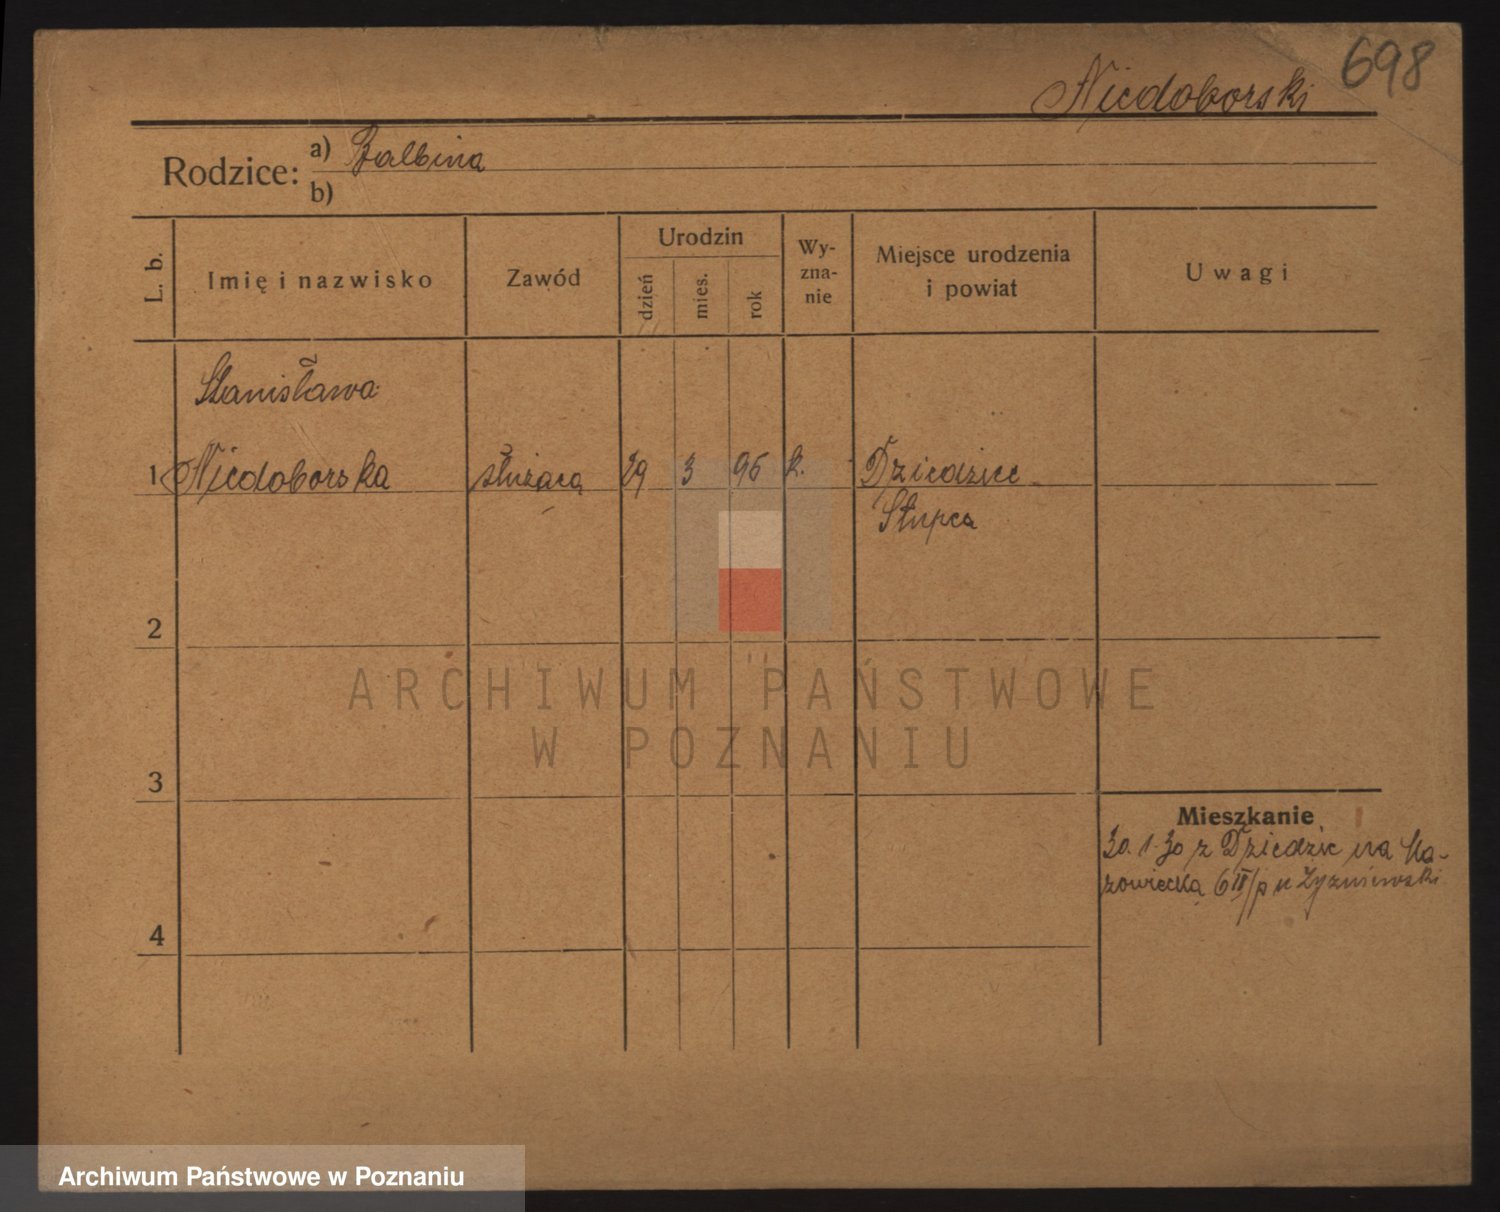 698
Niedoborski
Rodzice: a) Balbina
b)
L. b.
Imię i nazwisko
Zawód
Urodzin
dzień
mies.
rok
Wy-
zna-
nie
Miejsce urodzenia
i powiat
Uwagi
Stanisława
1 Niedoborska służąca 29 3 96 k. Dziedzice
Słupca
2
3
4
Mieszkanie
30. 1. 30 z Dziedzic na Ma-
zowiecką 6 II/p u Żyzniewski
ARCHIWUM PAŃSTWOWE
W POZNANIU
Archiwum Państwowe w Poznaniu